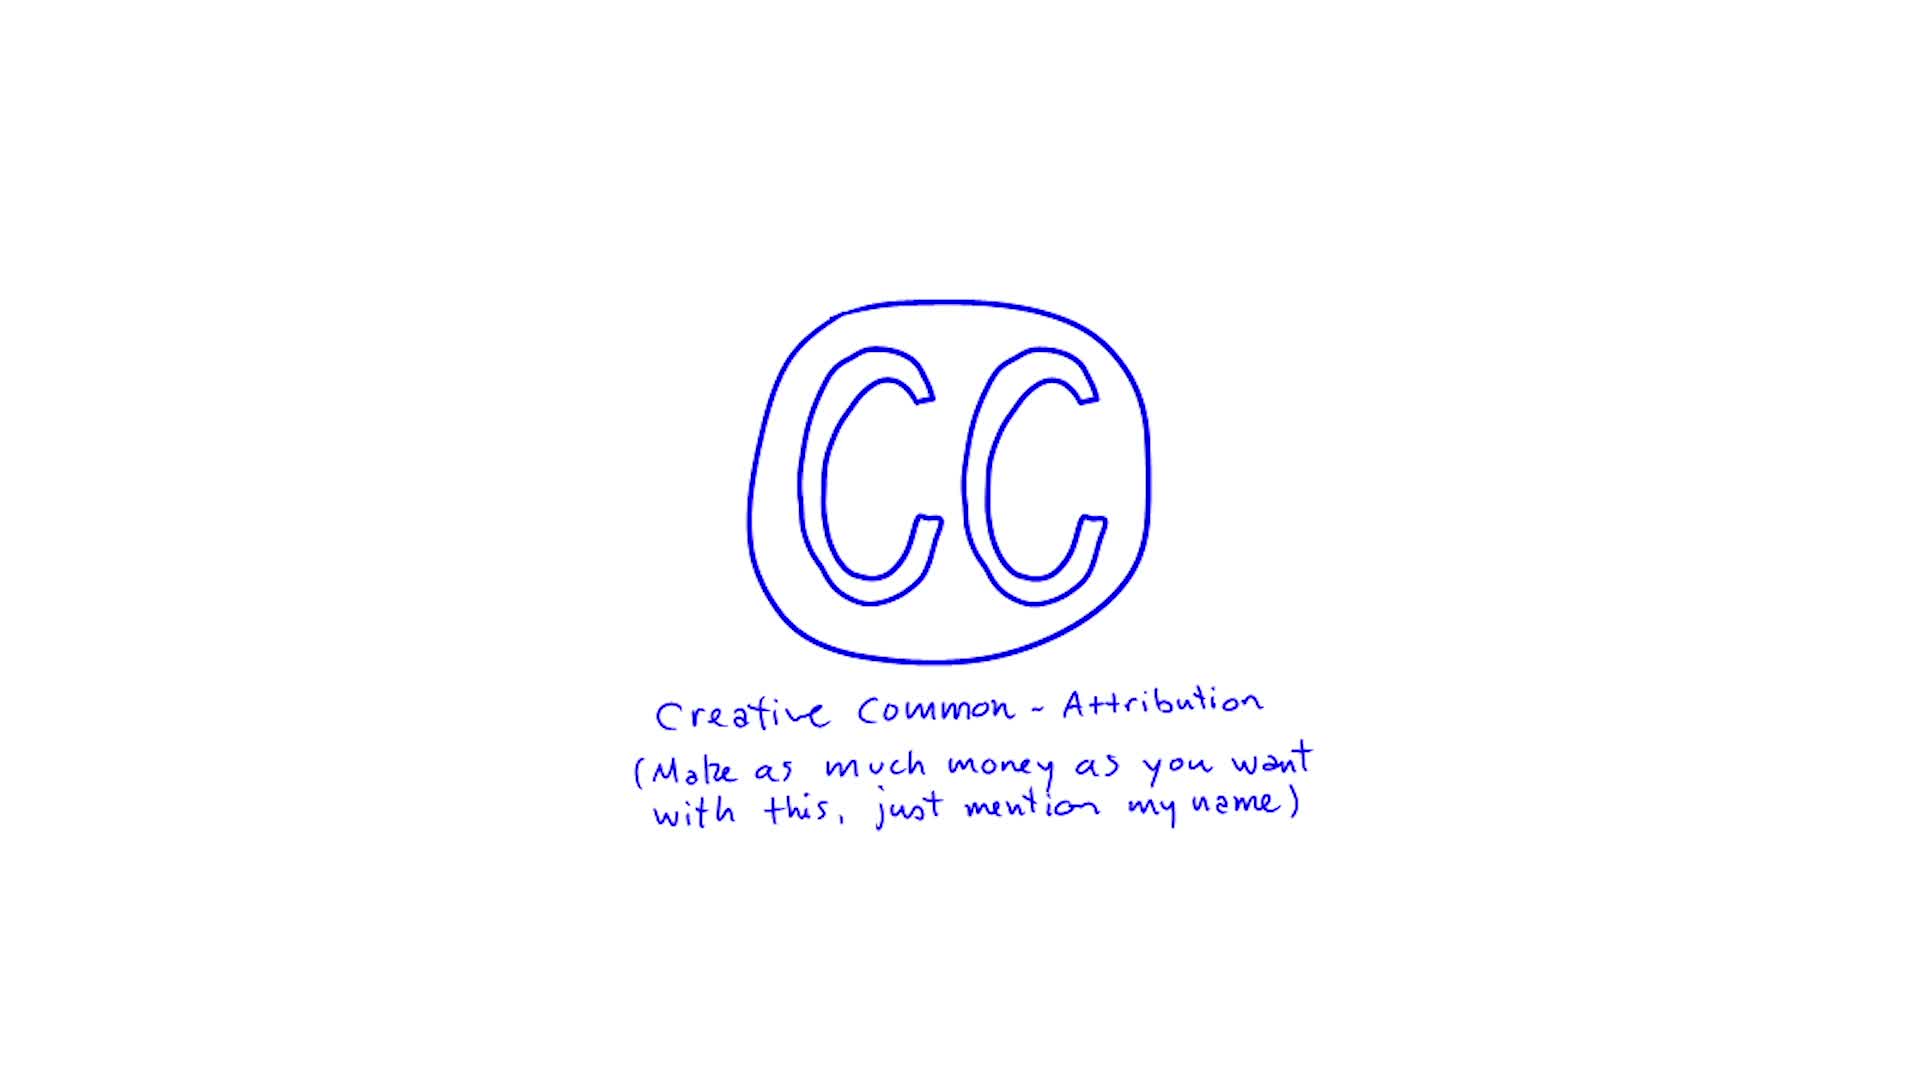 CC
Creative Common - Attribution
(Make as much money as you want
with this, just mention my name)